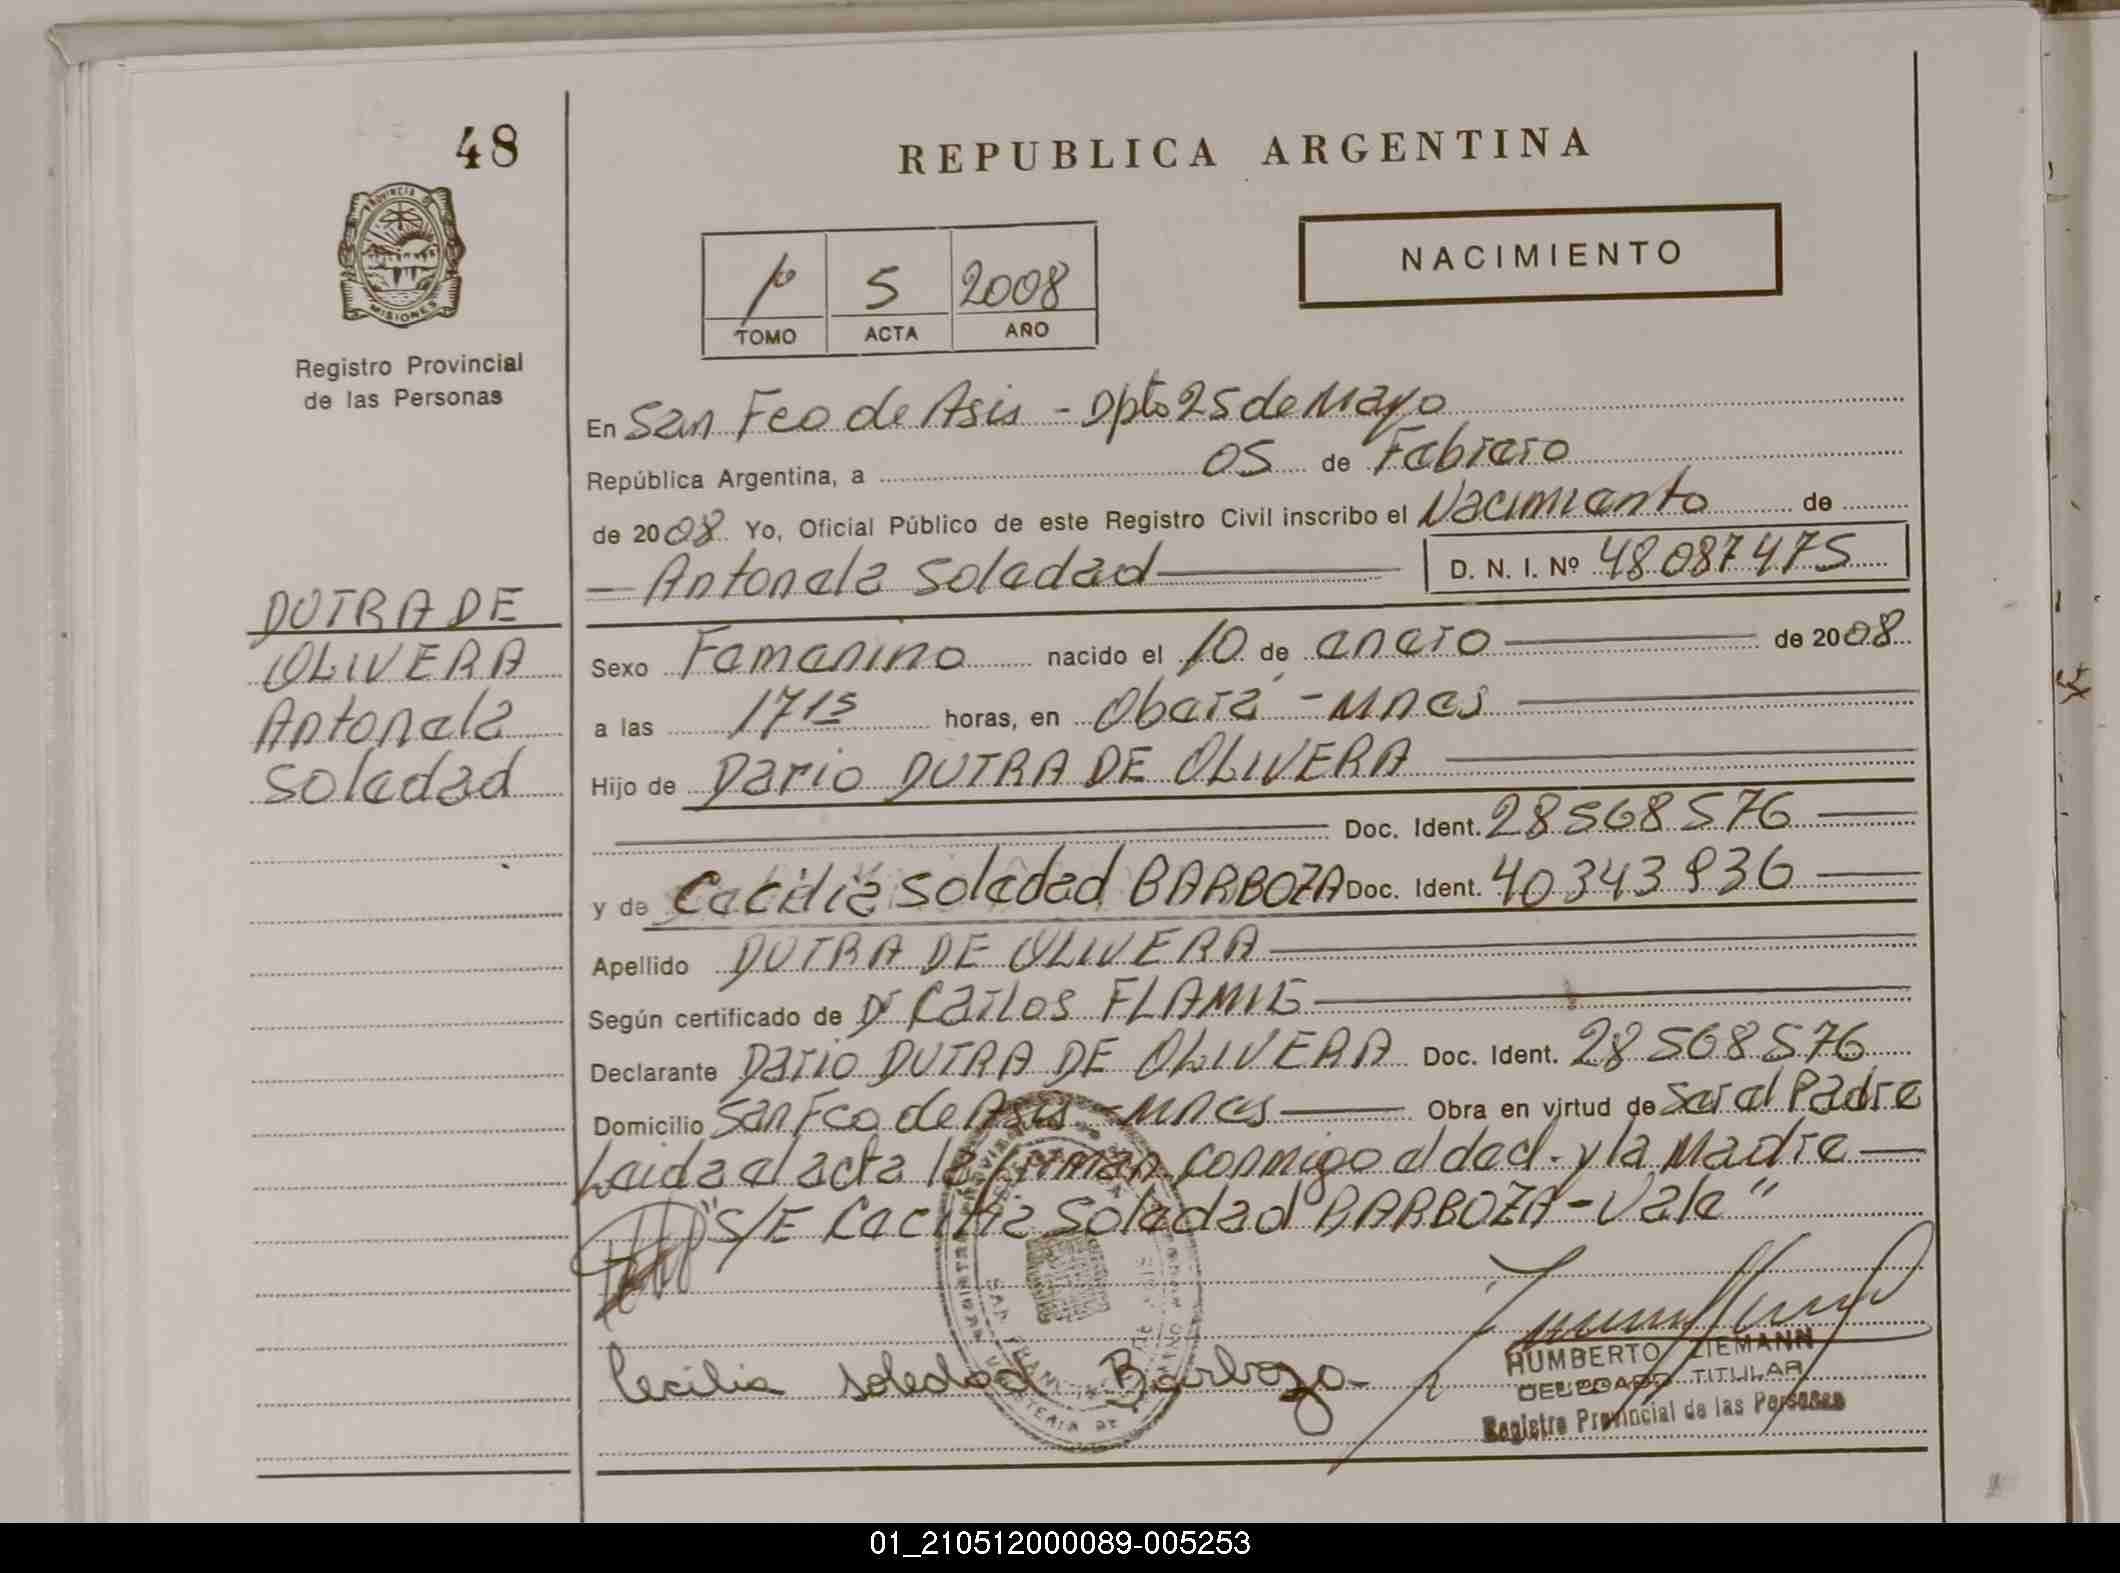 48
PROVINCIA DE
MISIONES
Registro Provincial
de las Personas
DUTRA DE
OLIVERA
Antonela
Soledad
REPUBLICA ARGENTINA
NACIMIENTO
1º 5 2008
TOMO ACTA AÑO
En San Fco de Asis - Dpto 25 de Mayo
República Argentina, a 05 de Febrero
de 2008 Yo, Oficial Público de este Registro Civil inscribo el Nacimiento de
Antonela Soledad D. N. I. Nº 48087475
Sexo Femenino nacido el 10 de enero de 2008
a las 17 15 horas, en Oberá - Mnes
Hijo de Dario DUTRA DE OLIVERA
Doc. Ident. 28568576
y de Cecilia Soledad BARBOZA Doc. Ident. 40343936
Apellido DUTRA DE OLIVERA
Según certificado de Dr Carlos FLAMIG
Declarante Dario DUTRA DE OLIVERA Doc. Ident. 28568576
Domicilio San Fco de Asis - Mnes Obra en virtud de Ser el Padre
Leida el acta la firman conmigo el decl. y la Madre
"S/E Cecilia Soledad BARBOZA - Vale"
Cecilia Soledad Barboza
HUMBERTO ZIEMANN
DELEGADO TITULAR
Registro Provincial de las Personas
01_210512000089-005253